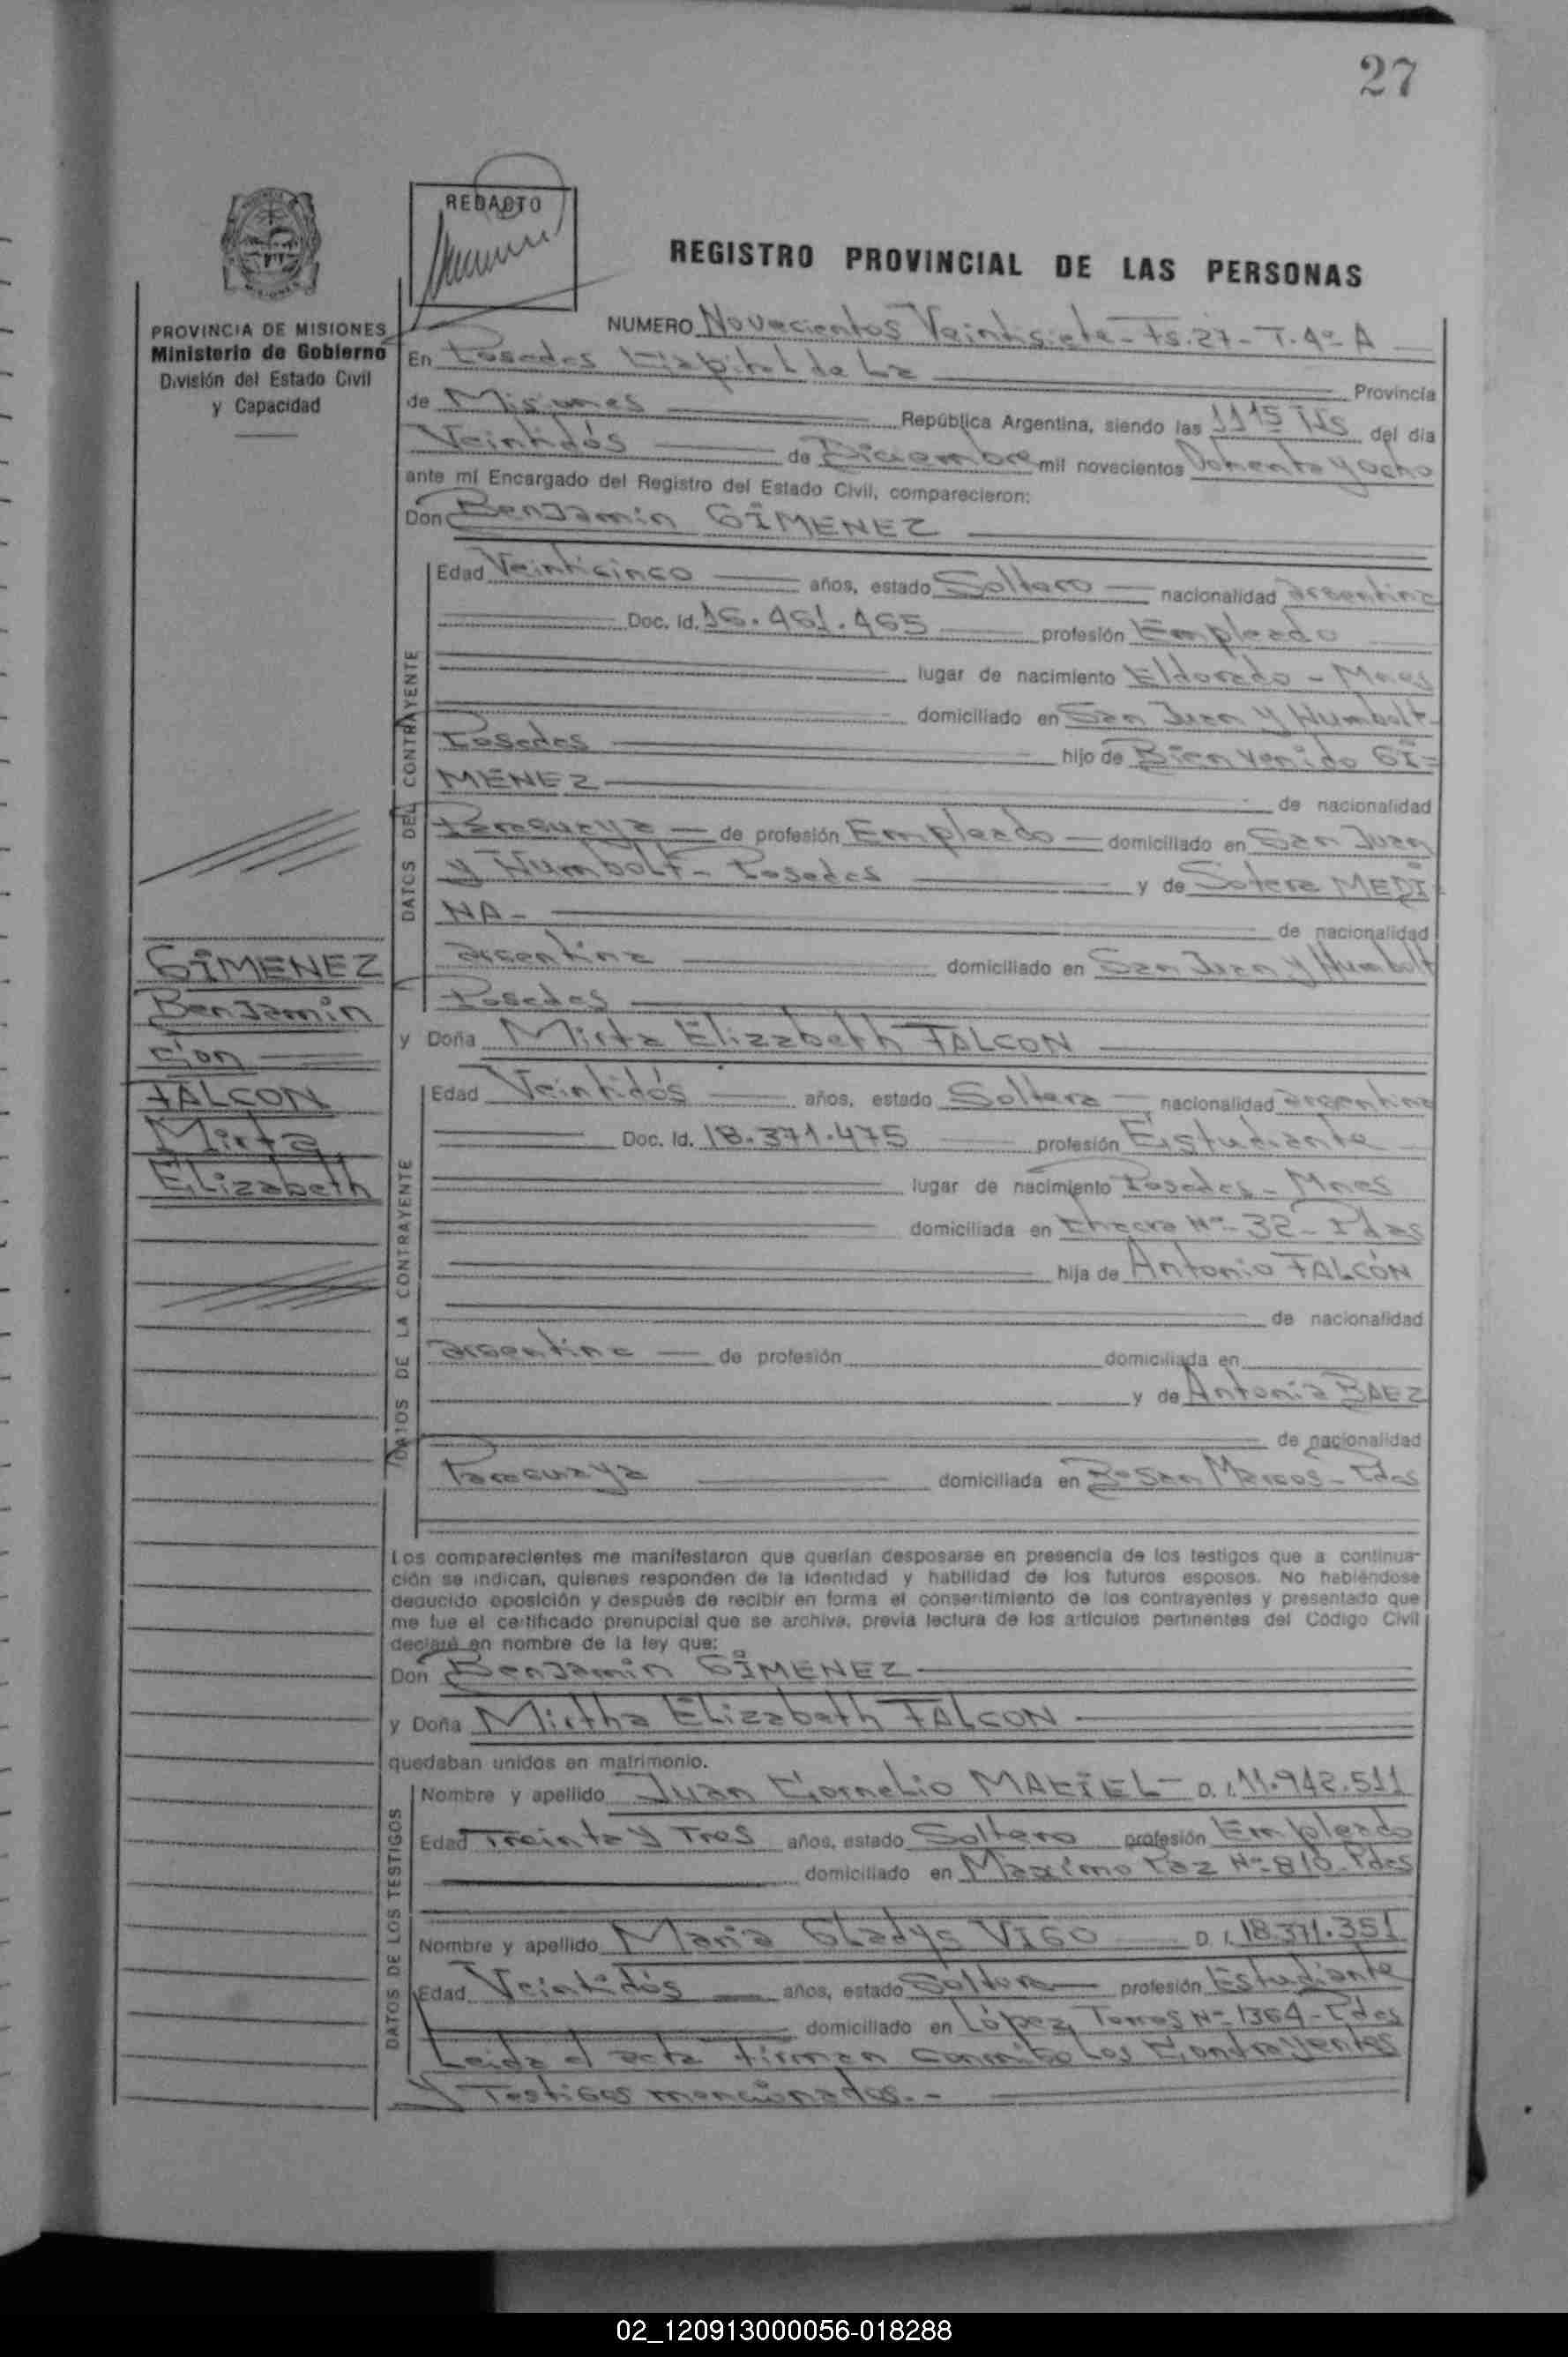 27
REDACTO
REGISTRO PROVINCIAL DE LAS PERSONAS
PROVINCIA DE MISIONES
Ministerio de Gobierno
División del Estado Civil
y Capacidad
NUMERO Novecientos Veintisiete - Fs. 27 - T. 4º - A
En Posadas Capital de La Provincia
de Misiones República Argentina, siendo las 1115 Hs del día
Veintidós de Diciembre mil novecientos Ochenta y ocho
ante mí Encargado del Registro del Estado Civil, comparecieron:
Don Benjamín GIMENEZ
DATOS DEL CONTRAYENTE
Edad Veinticinco años, estado Soltero nacionalidad argentina
Doc. Id. 16.461.465 profesión Empleado
lugar de nacimiento Eldorado - Mnes
domiciliado en San Juan y Humbolt-
Posadas hijo de Bienvenido GI=
MENEZ de nacionalidad
Paraguaya de profesión Empleado domiciliado en San Juan
y Humbolt - Posadas y de Sotera MEDI
NA - de nacionalidad
argentina domiciliado en San Juan y Humbolt
Posadas
GIMENEZ
Benjamín
con
FALCON
Mirta
Elizabeth
y Doña Mirta Elizabeth FALCON
DATOS DE LA CONTRAYENTE
Edad Veintidós años, estado Soltera nacionalidad argentina
Doc. Id. 18.371.475 profesión Estudiante
lugar de nacimiento Posadas - Mnes
domiciliada en Chacra Nº 32 - Pdas
hija de Antonio FALCÓN
de nacionalidad
argentina de profesión domiciliada en
y de Antonia BAEZ
de nacionalidad
Paraguaya domiciliada en Bº San Marcos - Pdas
Los comparecientes me manifestaron que querían desposarse en presencia de los testigos que a continua-
ción se indican, quienes responden de la identidad y habilidad de los futuros esposos. No habiéndose
deducido oposición y después de recibir en forma el consentimiento de los contrayentes y presentado que
me fue el certificado prenupcial que se archiva, previa lectura de los artículos pertinentes del Código Civil
declaré en nombre de la ley que:
Don Benjamín GIMENEZ
y Doña Mirtha Elizabeth FALCON
quedaban unidos en matrimonio.
DATOS DE LOS TESTIGOS
Nombre y apellido Juan Cornelio MACIEL - D. I. 11.942.511
Edad Treinta y Tres años, estado Soltero profesión Empleado
domiciliado en Maximo Paz Nº 810 - Pdas
Nombre y apellido Maria Gladys VIGO D. I. 18.371.351
Edad Veintidós años, estado Soltera profesión Estudiante
domiciliado en López Torres Nº 1364 - Pdas
Leida el acta firman conmigo Los Contrayentes
y Testigos mencionados. -
02_120913000056-018288